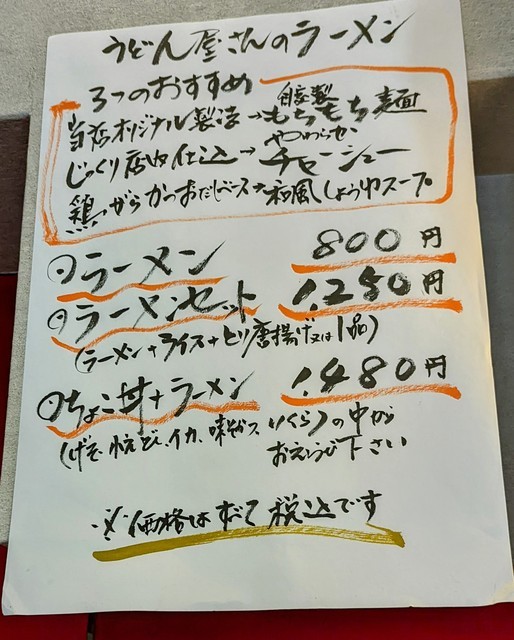 うどん屋さんのラーメン
3つのおすすめ
当店オリジナル製法→自家製もちもち麺
じっくり店内仕込→やわらかチャーシュー
鶏がらかつおだしベース→和風しょうゆスープ
ラーメン 800円
ラーメンセット 1,250円
(ラーメン+ライス+とり唐揚げ又は1品)
ちょこ丼+ラーメン 1,480円
イカ、 いくら)の中から
おえらび下さい
※価格はすべて税込です